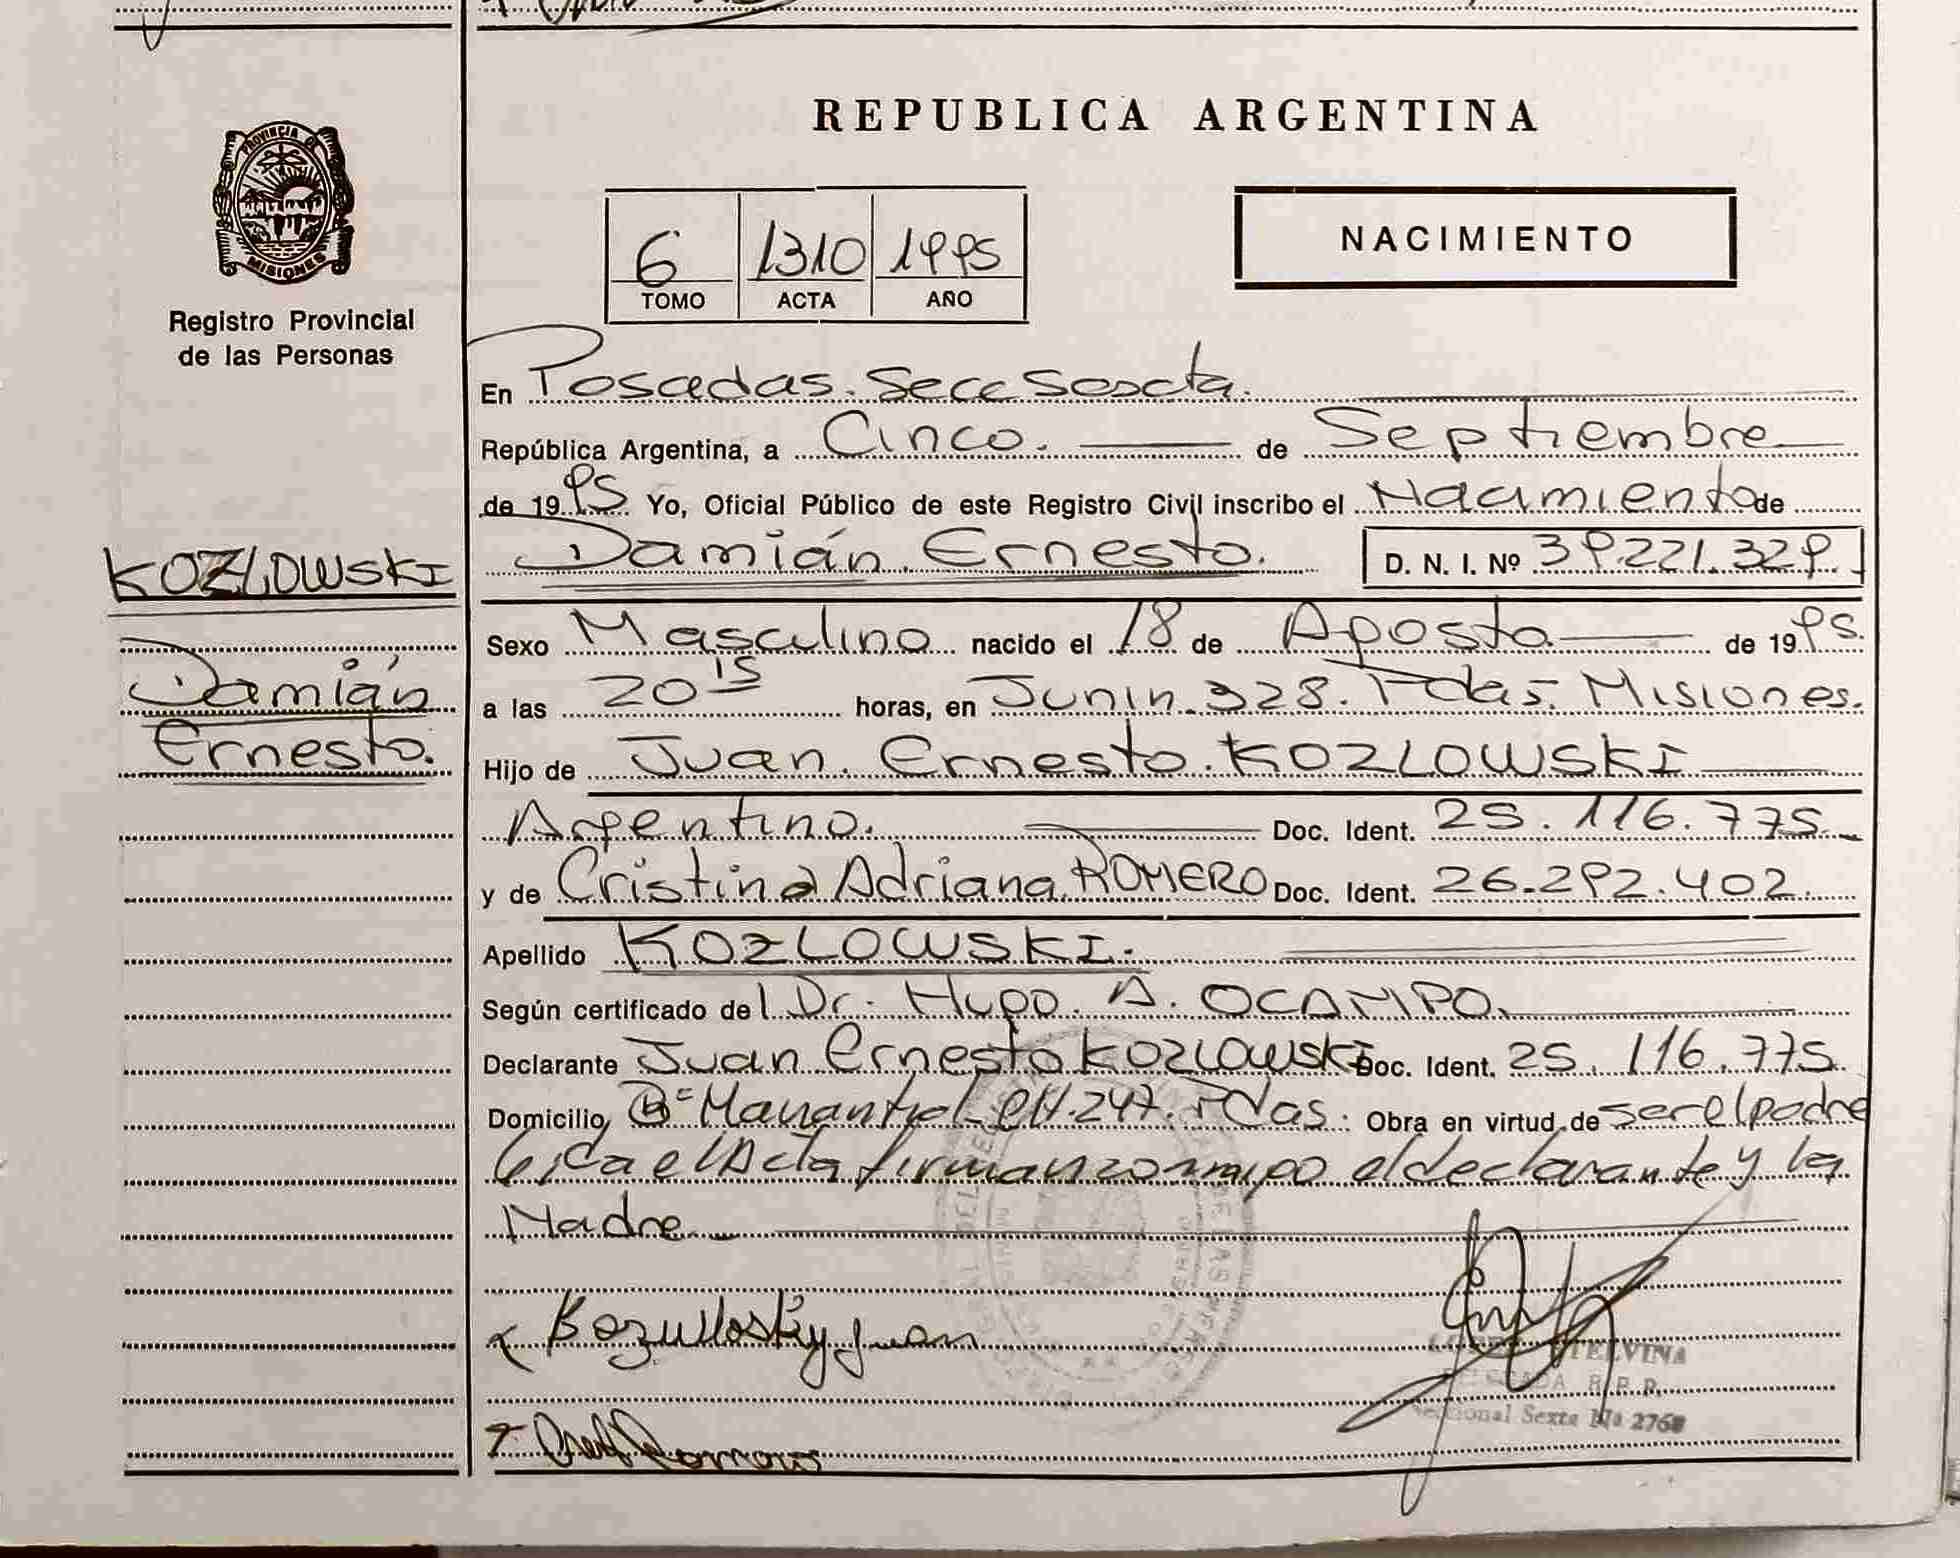 REPUBLICA ARGENTINA
PROVINCIA D
MISIONES
Registro Provincial
de las Personas
6 1310 1995
TOMO ACTA AÑO
NACIMIENTO
En Posadas. Secc Sexta.
República Argentina, a Cinco. de Septiembre
de 1995 Yo, Oficial Público de este Registro Civil inscribo el Nacimiento de
KOZLOWSKI
Damián Ernesto. D. N. I. Nº 39.221.329.
Sexo Masculino nacido el 18 de Agosto de 1995.
Damián
a las 20 15 horas, en Junin. 328. Pdas. Misiones.
Ernesto.
Hijo de Juan. Ernesto. KOZLOWSKI
Argentino. Doc. Ident. 25.116.775.
y de Cristina Adriana ROMERO Doc. Ident. 26.292.402.
Apellido KOZLOWSKI.
Según certificado del Dr. Hugo. A. OCAMPO.
Declarante Juan Ernesto KOZLOWSKI Doc. Ident. 25.116.775.
Domicilio Bº Manantial CH.247. Pdas. Obra en virtud de ser el padre
Leida el Acta firman conmigo el declarante y la
Madre
Kozullosky Juan
TELVINA
R.P.P.
Seccional Sexta
Romero